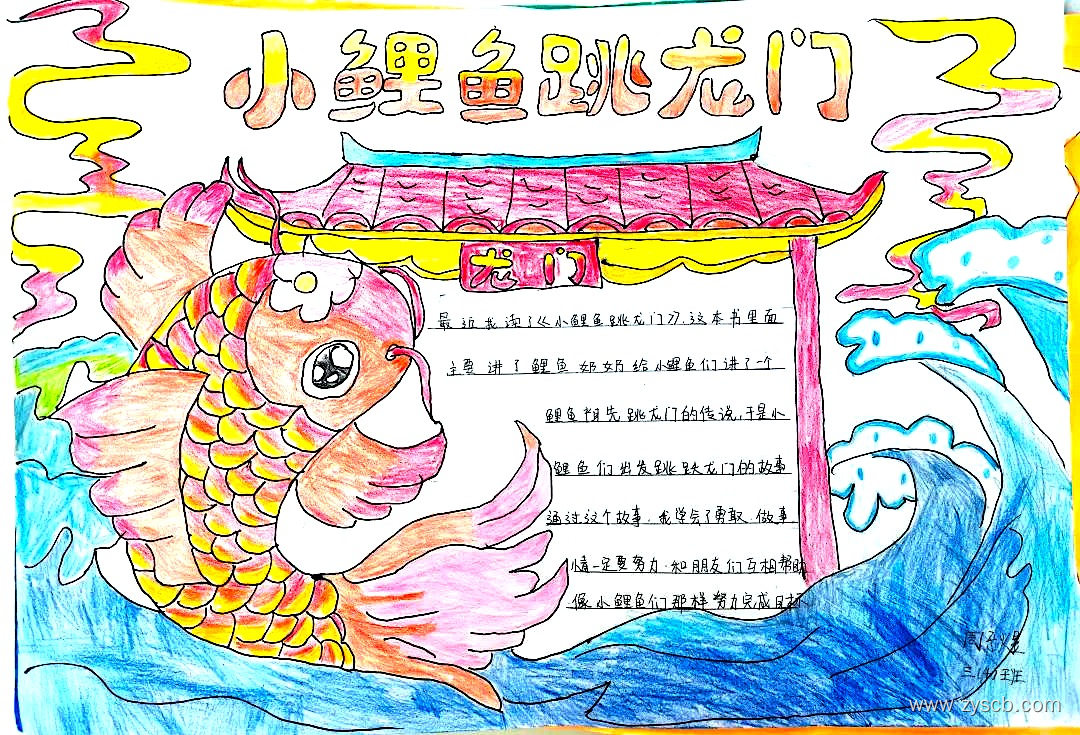 小鲤鱼跳龙门
龙门
最近我读了《小鲤鱼跳龙门》,这本书里面
主要讲了鲤鱼奶奶给小鲤鱼们讲了一个
鲤鱼祖先跳龙门的传说,于是小
鲤鱼们出发跳跃龙门的故事
通过这个故事,我学会了勇敢,做事
情一定要努力,和朋友们互相帮助
像小鲤鱼们那样努力完成目标
三(4)班
www.zyscb.com